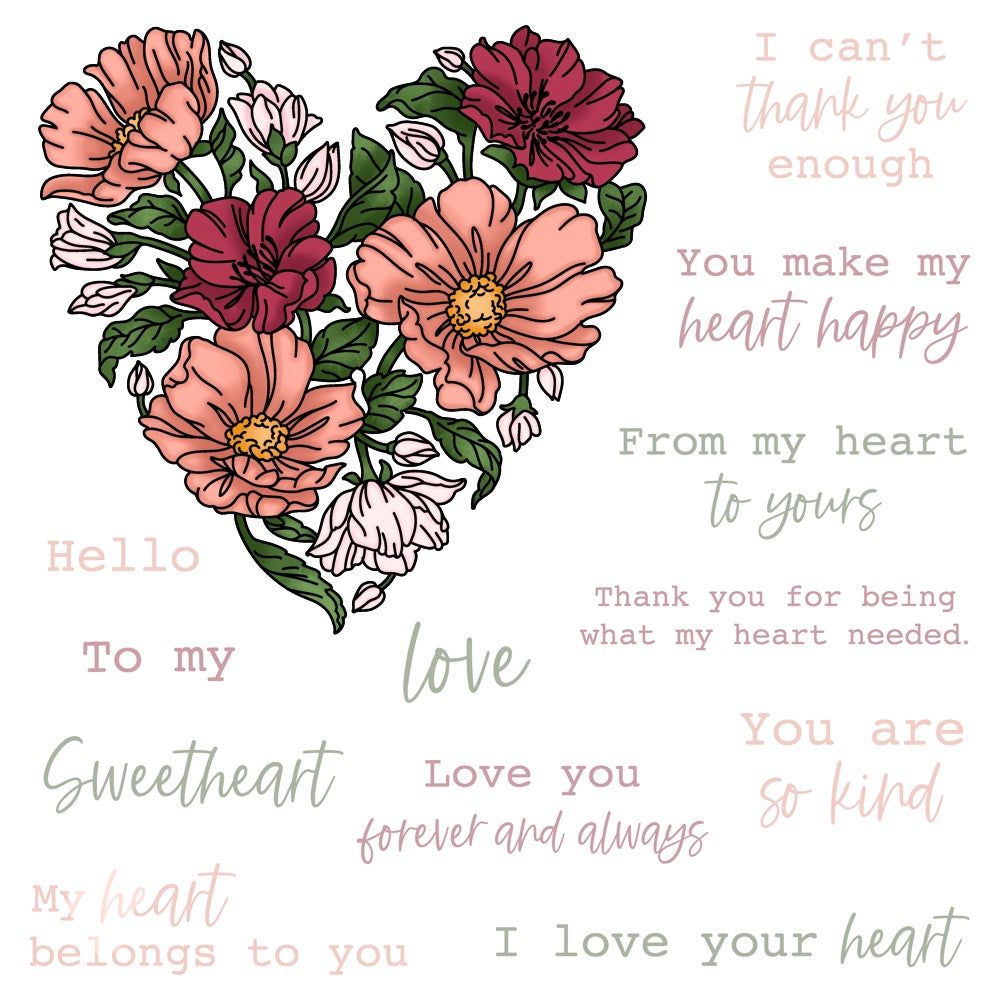 I can't
thank you
enough
You make my
heart happy
From my heart
to yours
Hello
Thank you for being
what my heart needed.
To my
love
Sweetheart
You are
so kind
Love you
forever and always
My heart
belongs to you
I love your heart